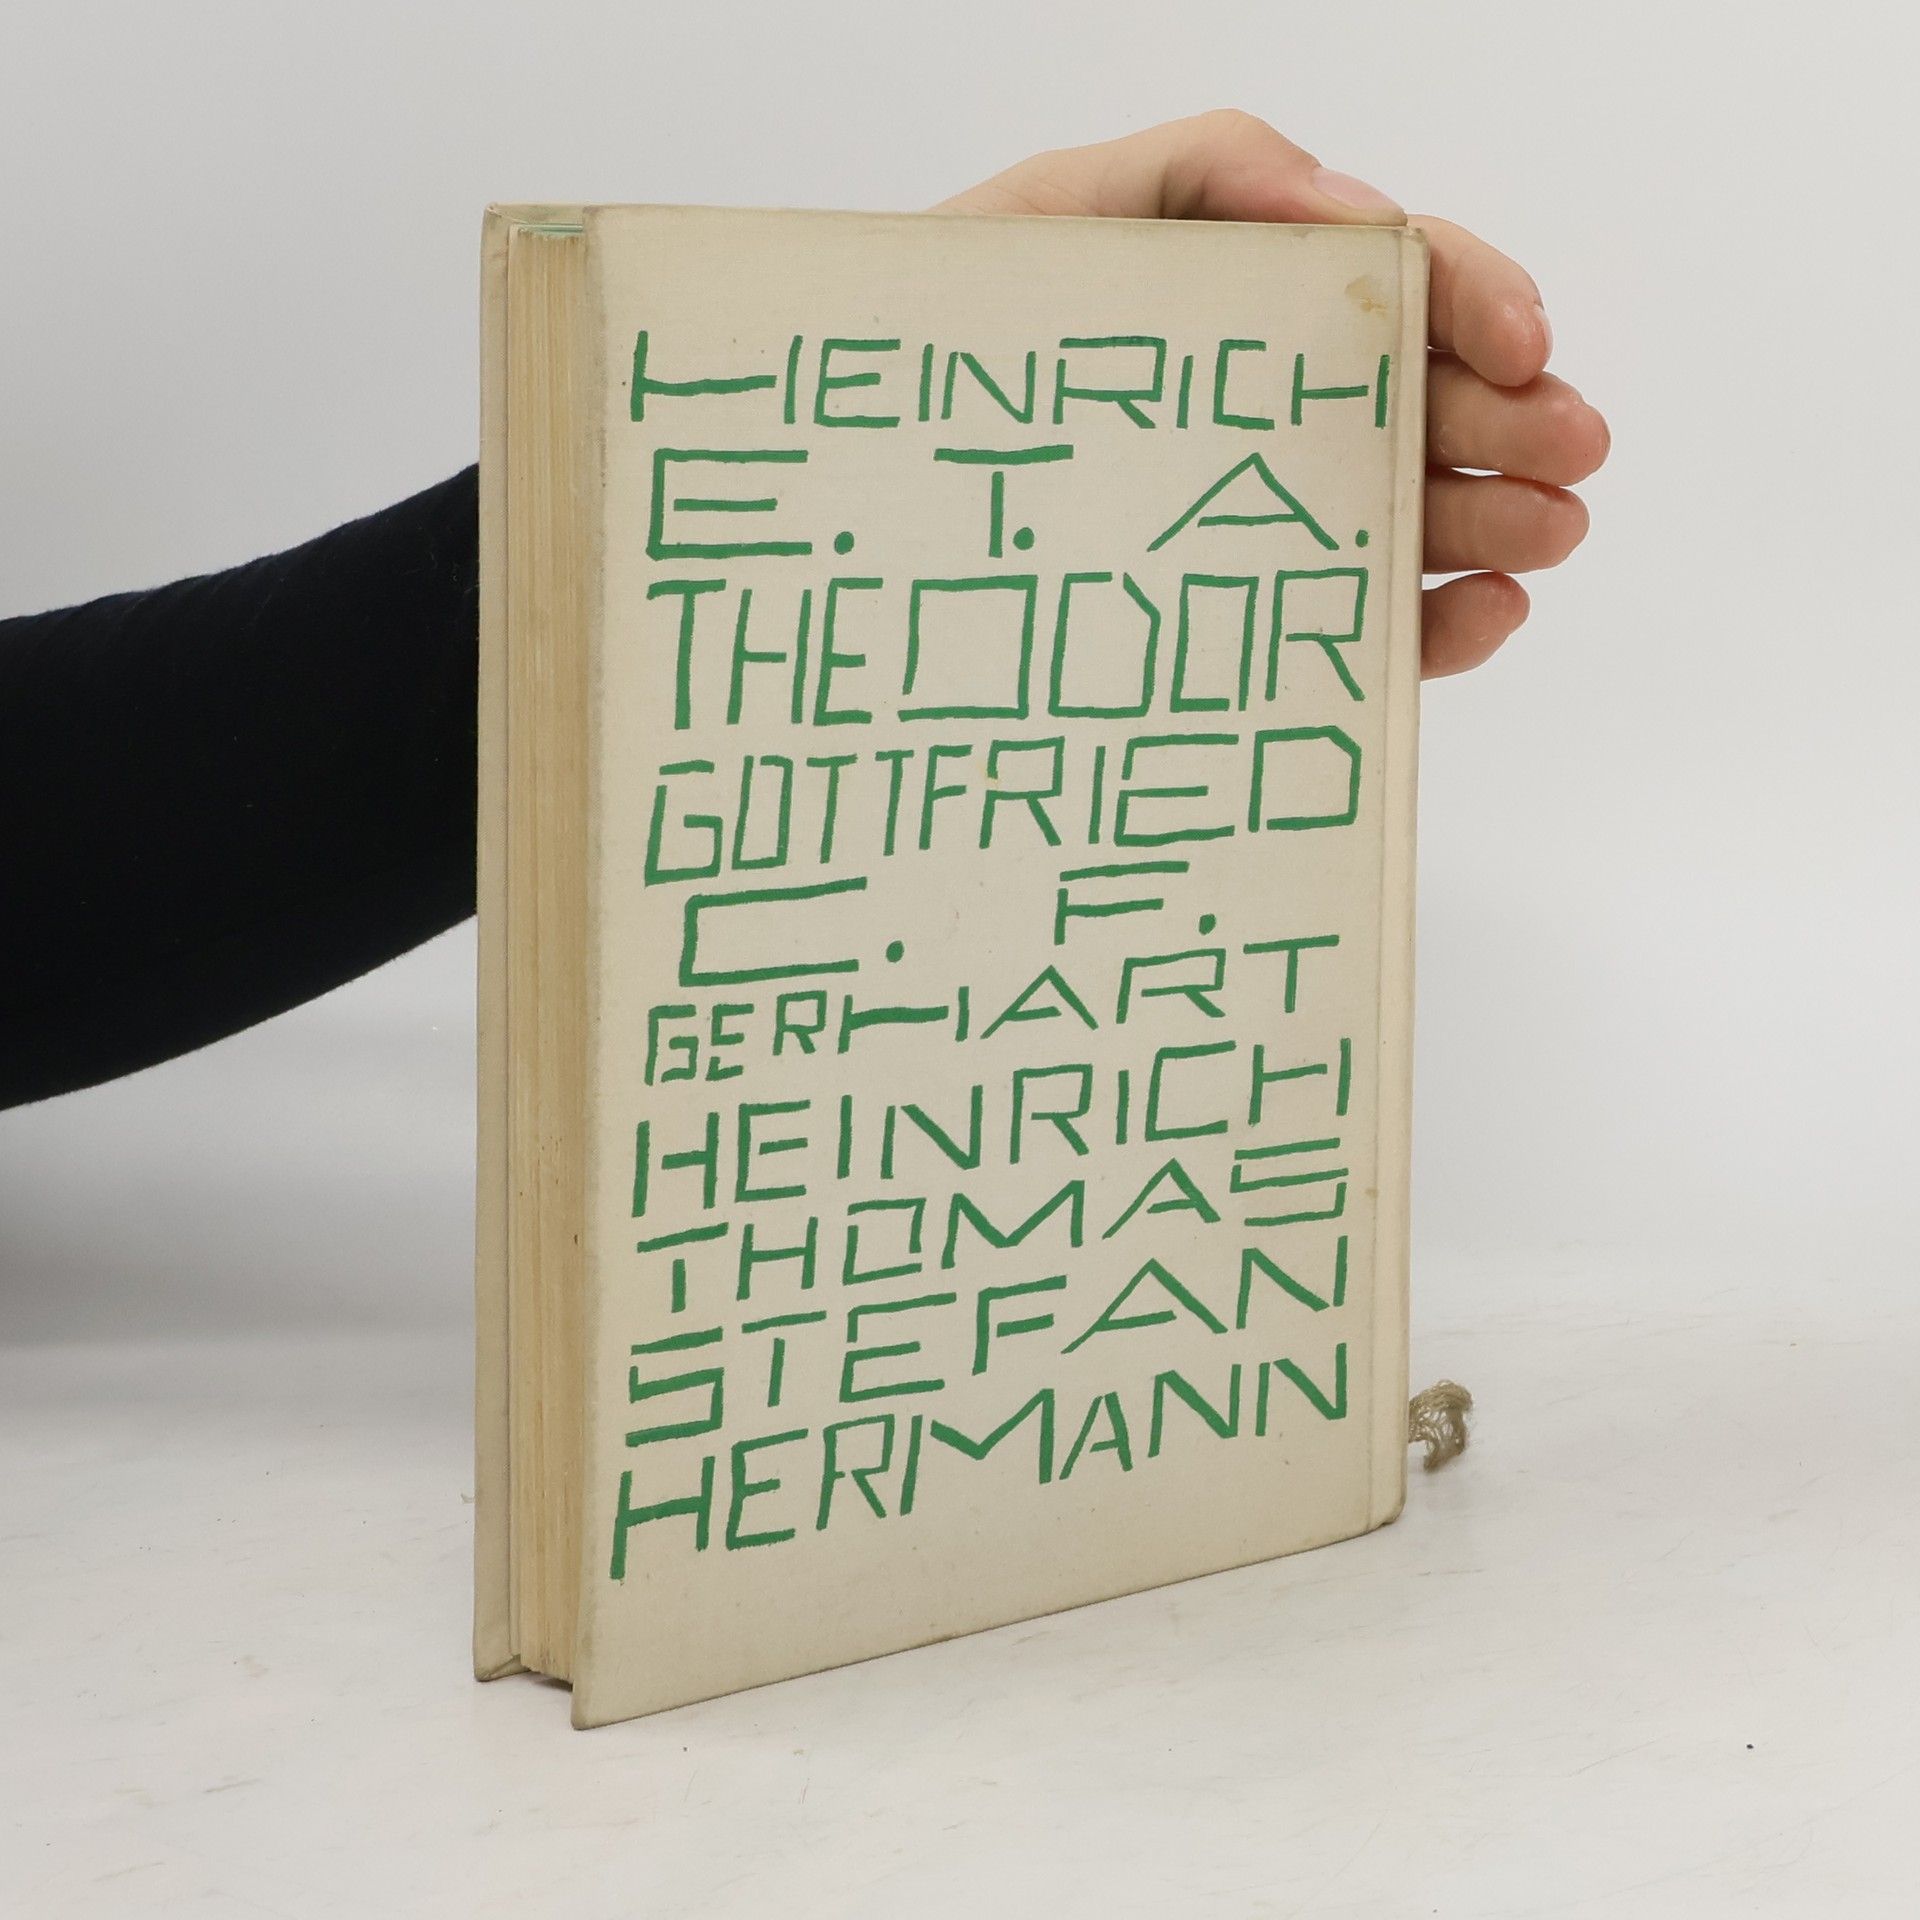 HEINRICH
E. T. A.
THEODOR
GOTTFRIED
C. F.
GERHART
HEINRICH
THOMAS
STEFAN
HERMANN